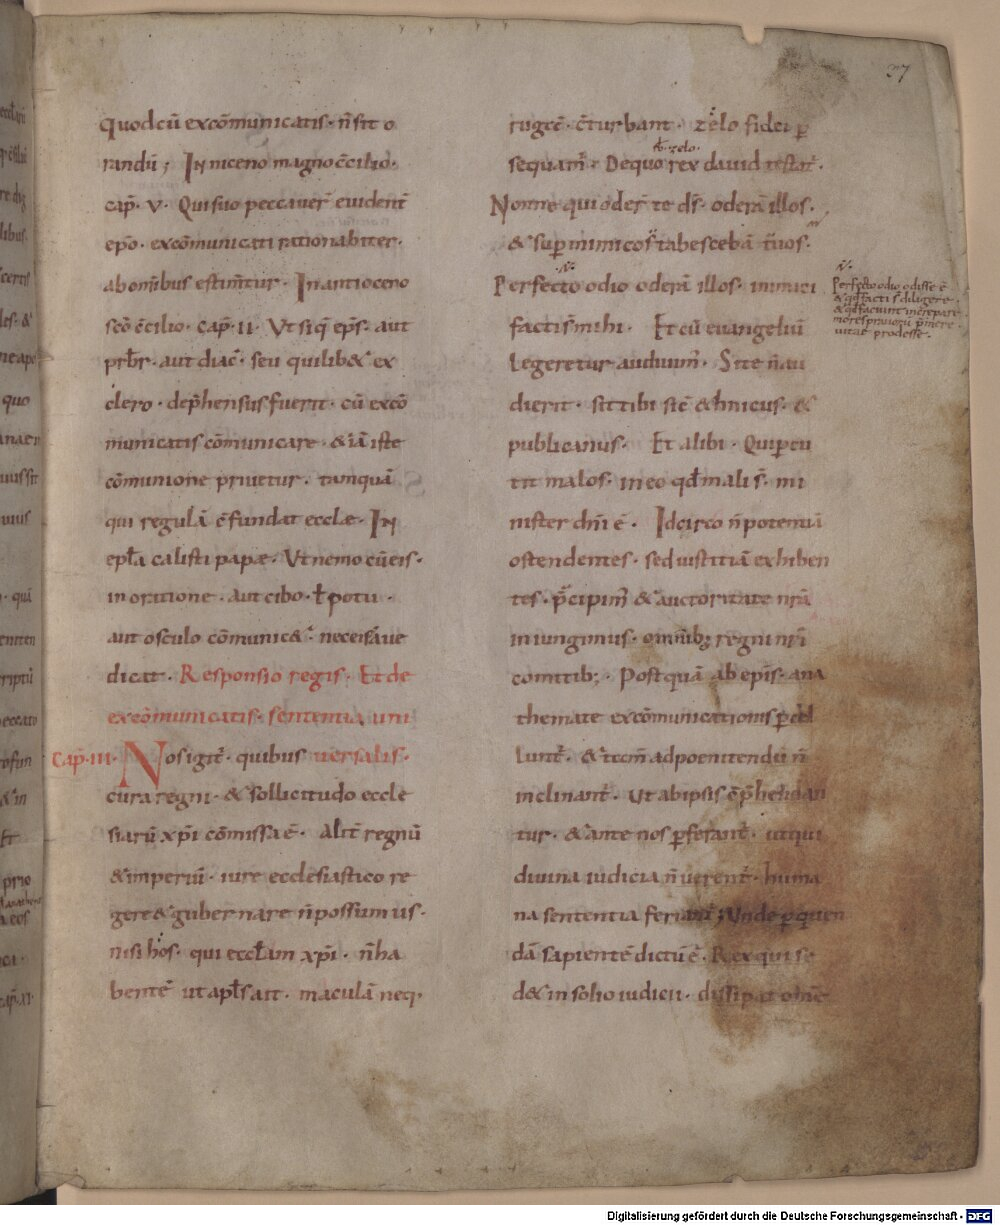 37
Quodcū excōmunicatis · n̄ sit o
randū ; In niceno magno c̄cilio ·
cap̄ · V · Qui suo peccauer̄ euident̄
ep̄o · excōmunicati rationabiter ·
ab omībus estim̄tur · In antioceno
sc̄o c̄cilio · cap̄ · II · Vt siq̄ ep̄s · aut
prb̄r · aut diac̄ · seu quilib& ex
clero · dep̄hensus fuerit · cū excō
municatis cōmunicare · & iā iste
cōmunione priuetur · tamquā
qui regulā c̄fundat eccłæ · In
epła calisti papæ · Vt nemo cū eis ·
in oratione · aut cibo · ł potu ·
aut osculo cōmunic& · nec eis aue
dicat · Responsio regis · Et de
excōmunicatis · sententia uni
uersalis ·
Cap̄ · III · Nos igit̄ · quibus
cura regni · & sollicitudo eccle
siarū xp̄i cōmissa ē · Alit̄ regnū
& imperiū · iure ecclesiastico re
gere & gubernare n̄ possumus ·
nisi hos · qui eccłam xp̄i · n̄ ha
bentē ut apłs ait · maculā neq·
rugā · c̄turbant · zelo fidei ꝑ
sequam̄ · De quo rex dauid testat̄ ·
ł · zelo ·
Nonne qui oder̄ te dn̄s · oderā illos ·
& sup̄ inimicos tabescebā tuos ·
Perfecto odio oderā illos · inimici
facti s̄ mihi · Et cū euangeliū
legeretur audiuim̄ · Si te n̄ au
dierit · sit tibi sic̄ & hnicus · &
publicanus · Et alibi · Qui ꝑcu
tit malos · in eo qd̄ mali s̄ · mi
nister dn̄i ē · Idcirco n̄ potentiā
ostendentes · sed iustitiā exhiben
tes · p̄cipim̄ & auctoritate nr̄a
iniungimus · omnib; regni nr̄i
comitib; · Postquā ab ep̄is · ana
themate excōmunicationis ꝑcel
lunt̄ · & tam̄ ad poenitendū n̄
inclinant̄ · Vt ab ipsis c̄p̄hendan
tur · & ante nos ꝑferant̄ · ut qui
diuina iudicia n̄ uerent̄ · huma
na sententia feriant̄ ; Vnde ꝑ quen
dā sapientē dictū ē · Rex qui se
d& in solio iudicii · dissipat omē
Perfecto odio odisse ē
& qd̄ facti s̄ diligere ·
& qd̄ faciunt increpare
mores prauorū p̄mere ·
uitae prodesse ·
Digitalisierung gefördert durch die Deutsche Forschungsgemeinschaft - DFG